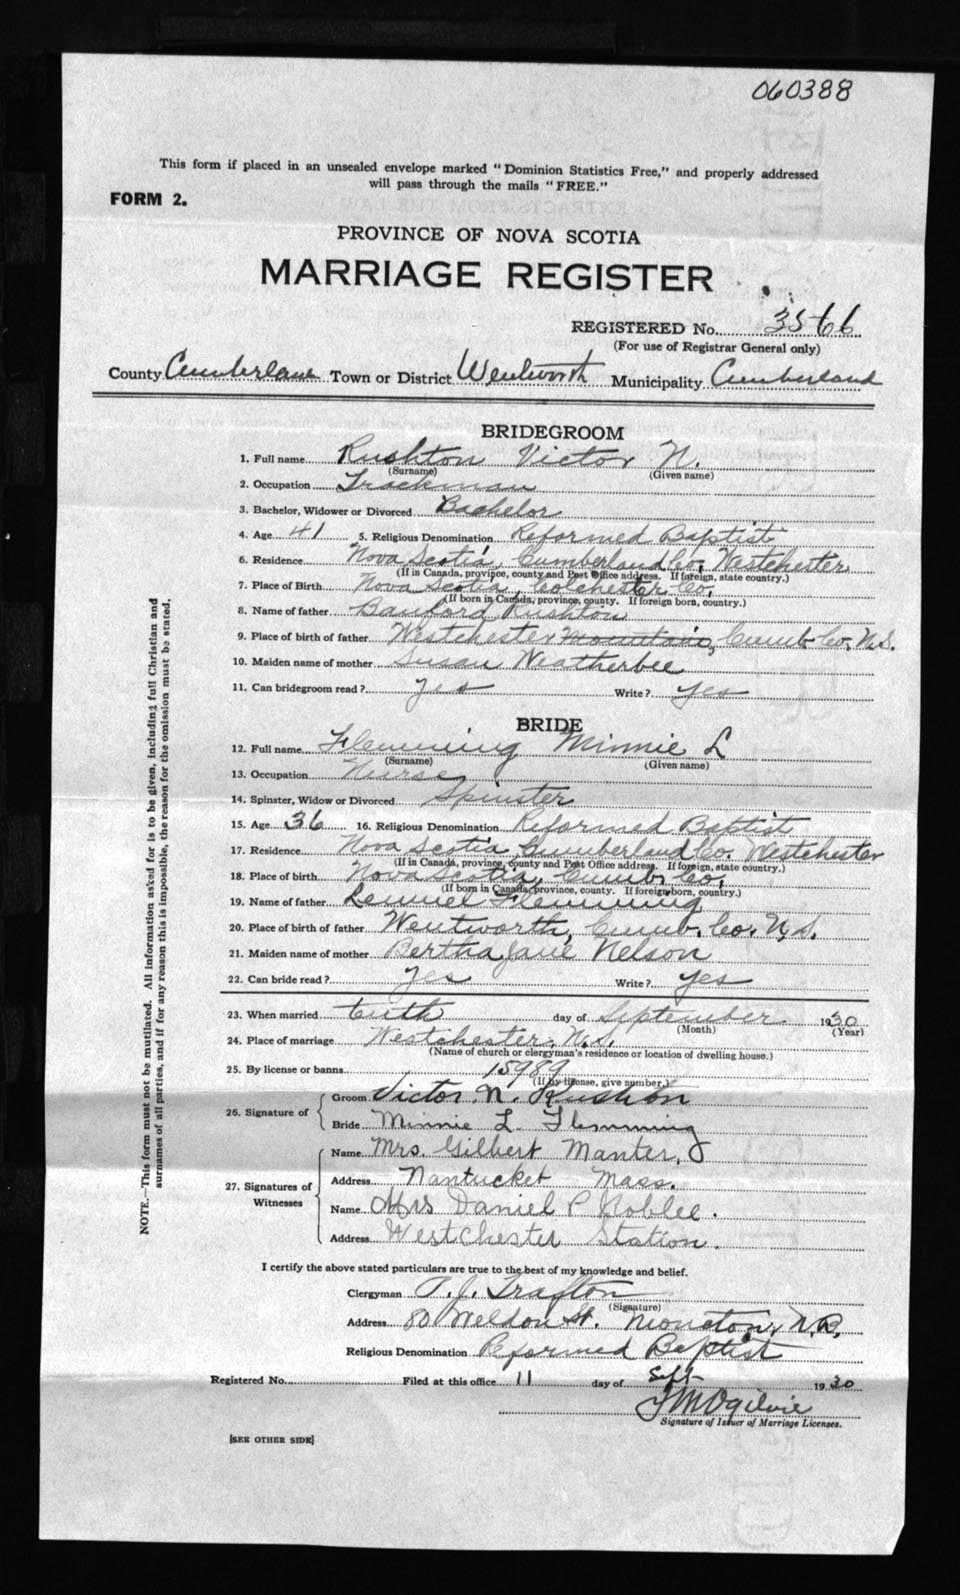 060388
This form if placed in an unsealed envelope marked "Dominion Statistics Free," and properly addressed
will pass through the mails "FREE."
FORM 2.
PROVINCE OF NOVA SCOTIA
MARRIAGE REGISTER
REGISTERED No. 3566
(For use of Registrar General only)
County Cumberland Town or District Wentworth Municipality Cumberland
BRIDEGROOM
1. Full name Rushton Victor N.
(Surname) (Given name)
2. Occupation Trackman
3. Bachelor, Widower or Divorced Bachelor
4. Age 41 5. Religious Denomination Reformed Baptist
6. Residence Nova Scotia, Cumberland Co, Westchester
(If in Canada, province, county and Post Office address. If foreign, state country.)
7. Place of Birth Nova Scotia, Colchester Co,
(If born in Canada, province, county. If foreign born, country.)
8. Name of father Banford Rushton
9. Place of birth of father Westchester Mountain, Cumb Co, N.S.
10. Maiden name of mother Susan Weatherbee
11. Can bridegroom read? yes Write? yes
BRIDE
12. Full name Flemming Minnie L
(Surname) (Given name)
13. Occupation Nurse
14. Spinster, Widow or Divorced Spinster
15. Age 36 16. Religious Denomination Reformed Baptist
17. Residence Nova Scotia, Cumberland Co. Westchester
(If in Canada, province, county and Post Office address. If foreign, state country.)
18. Place of birth Nova Scotia, Cumb. Co,
(If born in Canada, province, county. If foreign born, country.)
19. Name of father Lemuel Flemming
20. Place of birth of father Wentworth, Cumb. Co. N.S.
21. Maiden name of mother Bertha Jane Nelson
22. Can bride read? yes Write? yes
23. When married tenth day of September 1930
(Month) (Year)
24. Place of marriage Westchester, N.S.
(Name of church or clergyman's residence or location of dwelling house.)
25. By license or banns 15989
(If by license, give number.)
26. Signature of Groom Victor. N. Rushton
Bride Minnie L. Flemming
27. Signatures of Witnesses Name Mrs. Gilbert Manter,
Address Nantucket Mass.
Name Mrs Daniel P Noblee.
Address Westchester Station.
I certify the above stated particulars are true to the best of my knowledge and belief.
Clergyman P. J. Trafton
(Signature)
Address 80 Weldon St. Moncton, N.B.
Religious Denomination Reformed Baptist
Registered No. Filed at this office 11 day of Sept 1930
Ogilvie
Signature of Issuer of Marriage Licenses.
[SEE OTHER SIDE]
NOTE.—This form must not be mutilated. All information asked for is to be given, including full Christian and
surnames of all parties, and if for any reason this is impossible, the reason for the omission must be stated.